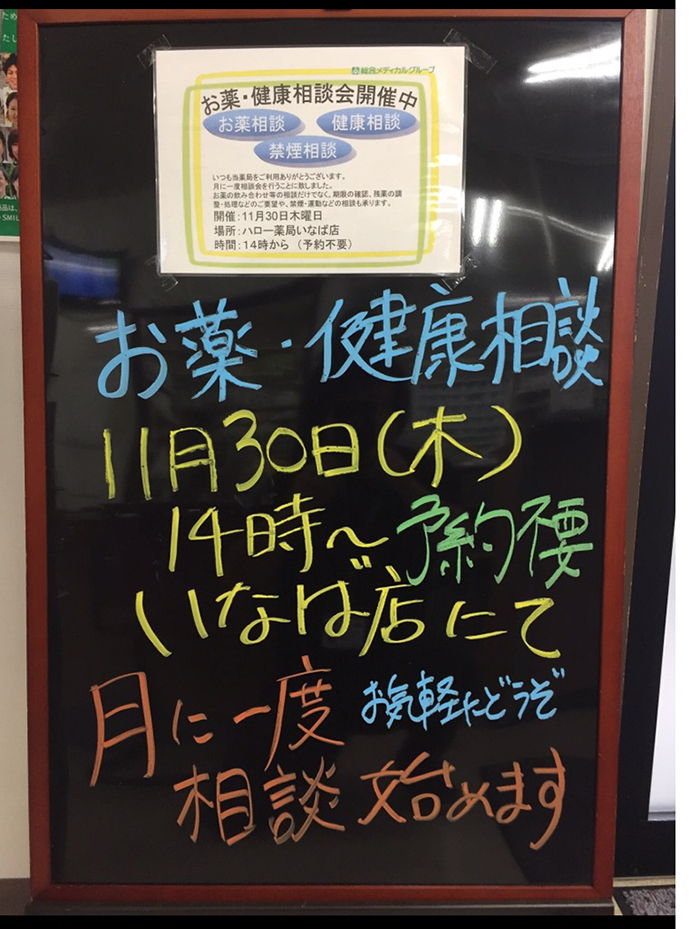 総合メディカルグループ
お薬・健康相談会開催中
お薬相談
健康相談
禁煙相談
いつも当薬局をご利用ありがとうございます。
月に一度相談会を行うことに致しました。
お薬の飲み合わせ等の相談だけでなく、期限の確認、残薬の調
整・処理などのご要望や、禁煙・運動などの相談も承ります。
開催：11月30日木曜日
場所：ハロー薬局いなば店
時間：14時から （予約不要）
お薬・健康相談
11月30日(木)
14時～予約不要
いなば店にて
月に一度 お気軽にどうぞ
相談始めます